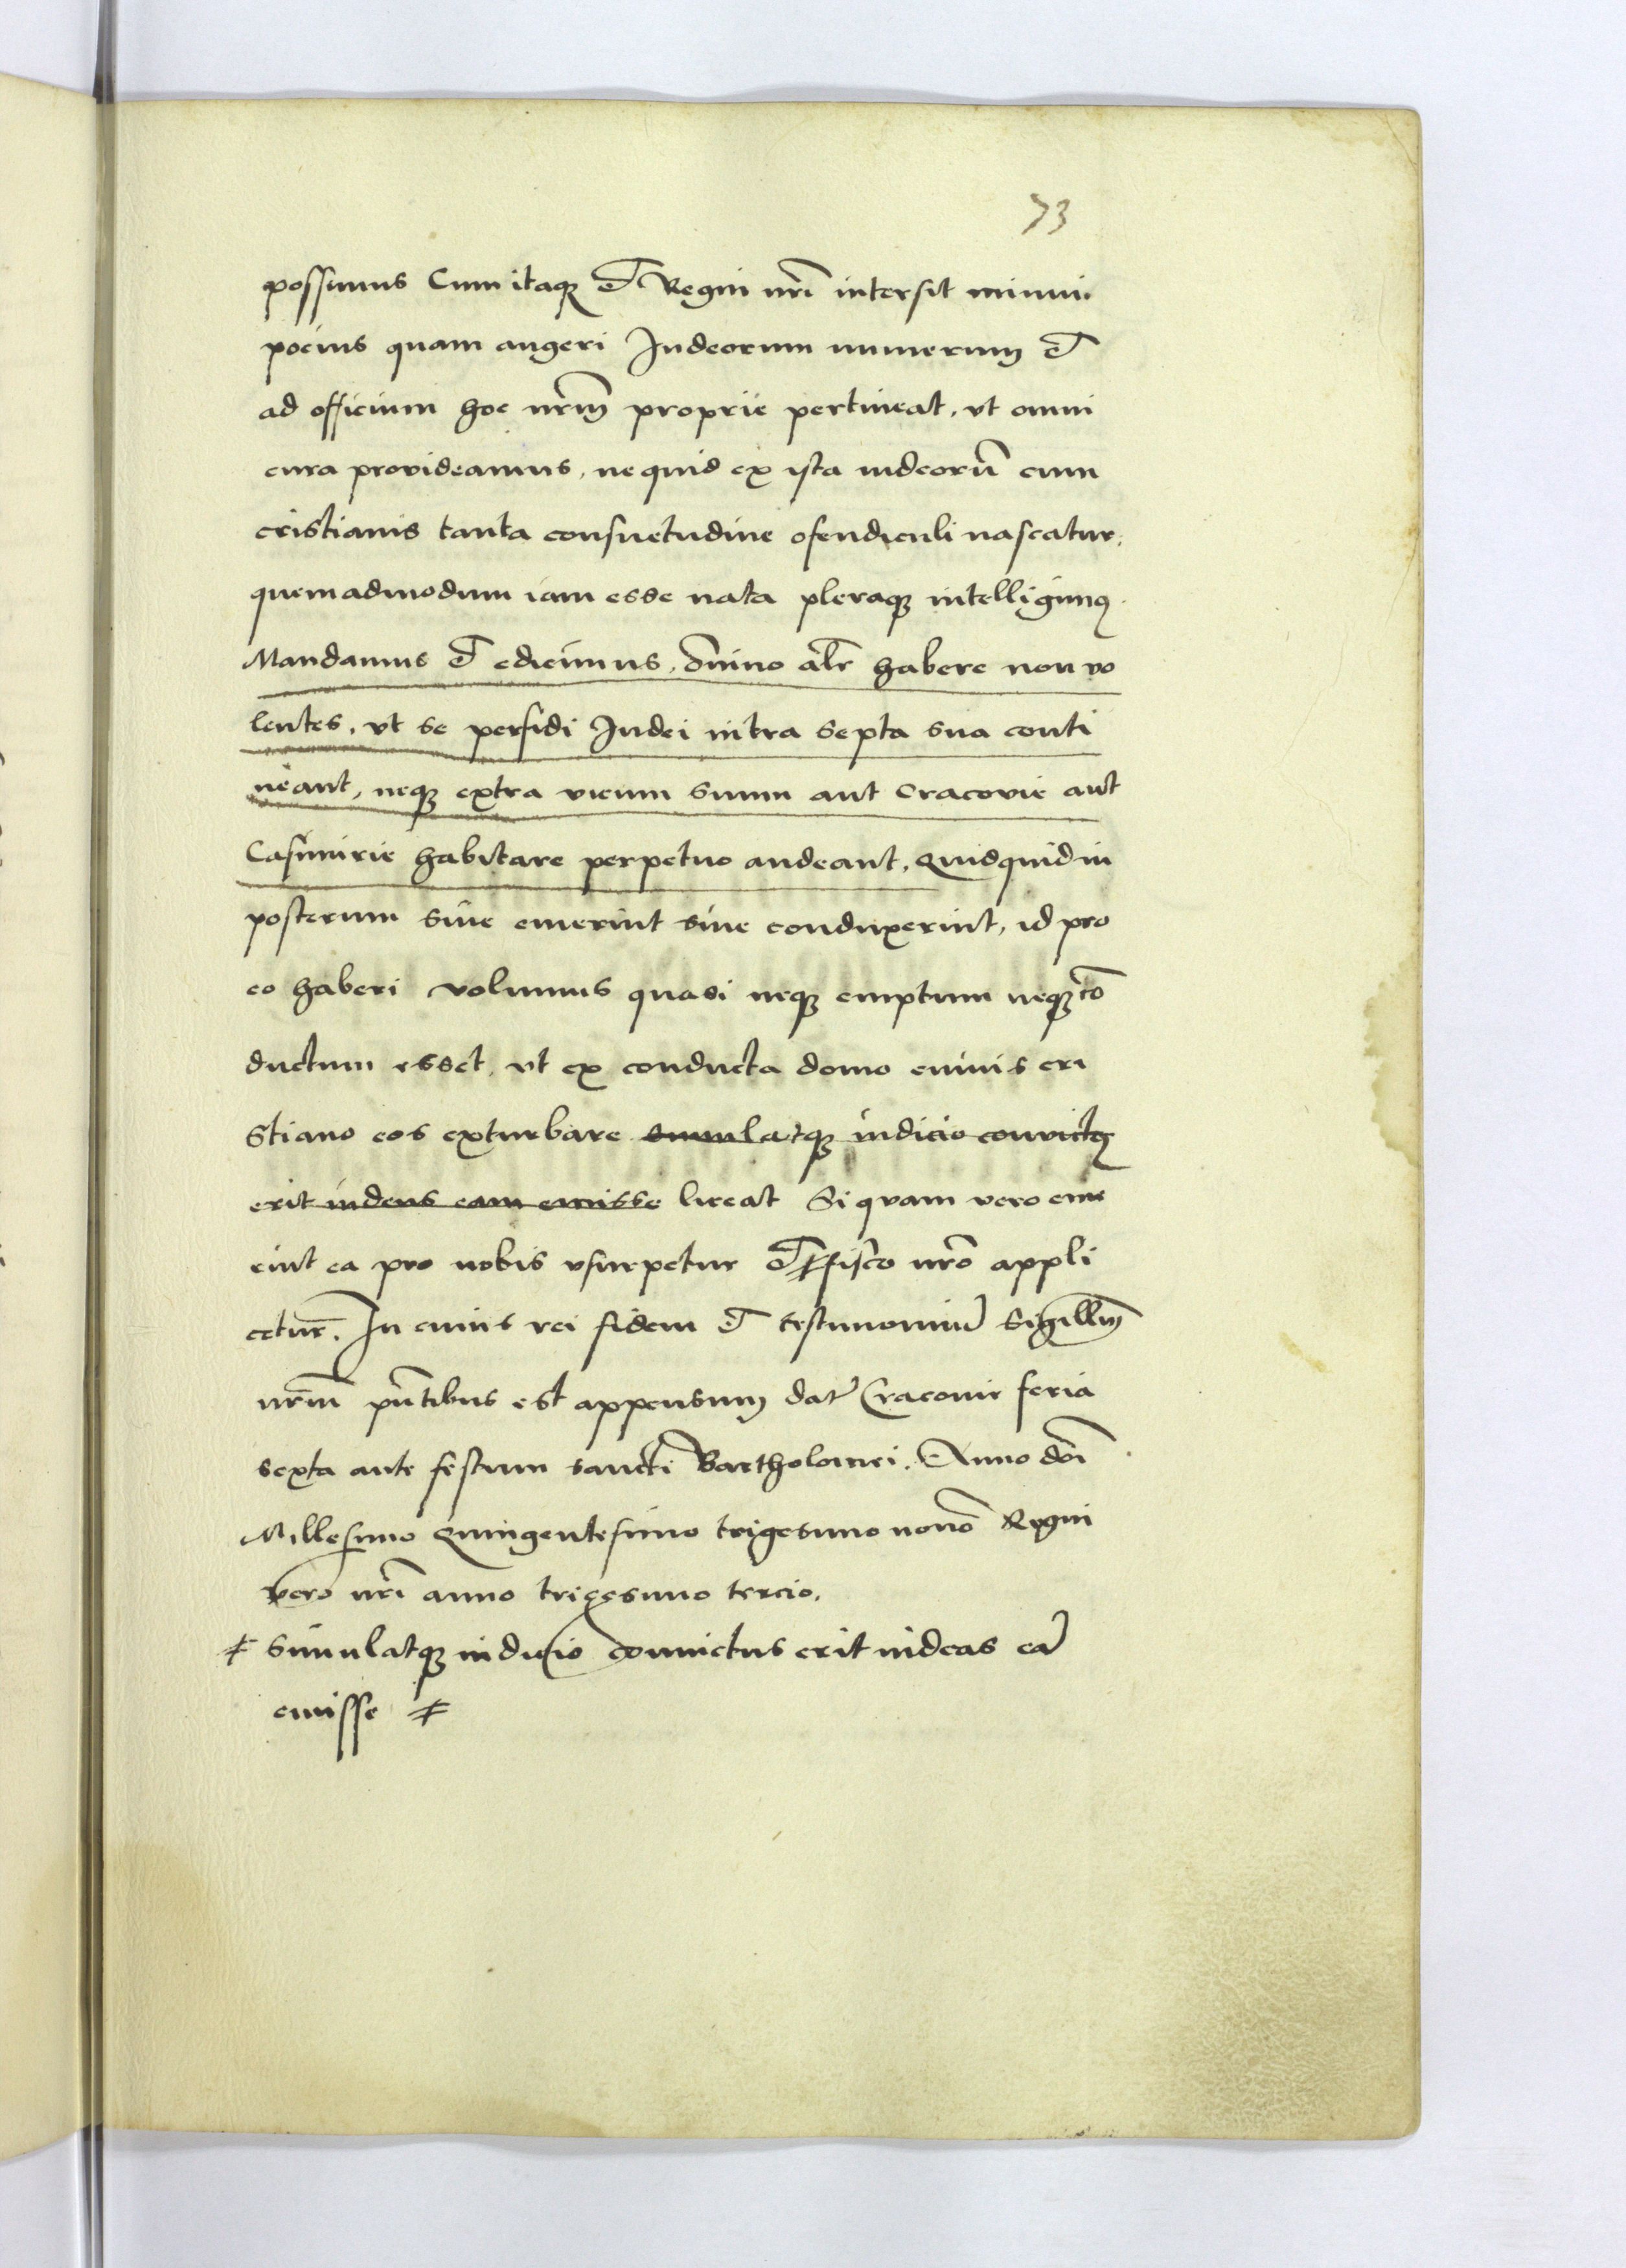 73
possimus Cum itaq; et Regni nr̃i intersit minui
pocius quam augeri Iudeorum numerum et
ad officium hoc nr̃m proprie pertineat, vt omni
cura provideamus, ne quid ex ista iudeorũ cum
cristianis tanta consuetudine ofendiculi nascatur,
quemadmodum iam esse nata pleraq; intelligimus.
Mandamus et edicimus, õmino alr̃ habere non vo
lentes, vt se perfidi Iudei intra septa sua conti
neant, neq; extra vicum suum aut Cracovie aut
Casimirie habitare perpetuo audeant, Quidquid in
posterum siue emerint siue conduxerint, id pro
eo haberi volumus quasi neq; emptum neq; cõ
ductum esset, vt ex conducta domo cuiuis cri
stiano eos exturbare simulatq; iudicio convictus
erit iudeus eam emisse liceat Si quam vero eme
rint ea pro nobis vsurpetur et fisco nr̃o appli
cetur. In cuius rei fidem et testimoniũ Sigillum
nr̃m pñtibus est appensum dat̃ Cracouie feria
sexta ante festum sancti Bartholomei. Anno dñi
Millesimo Quingentesimo trigesimo nono Regni
vero nr̃i anno tricesimo tercio.
simulatq; iudicio conuictus erit iudeus eã
emisse